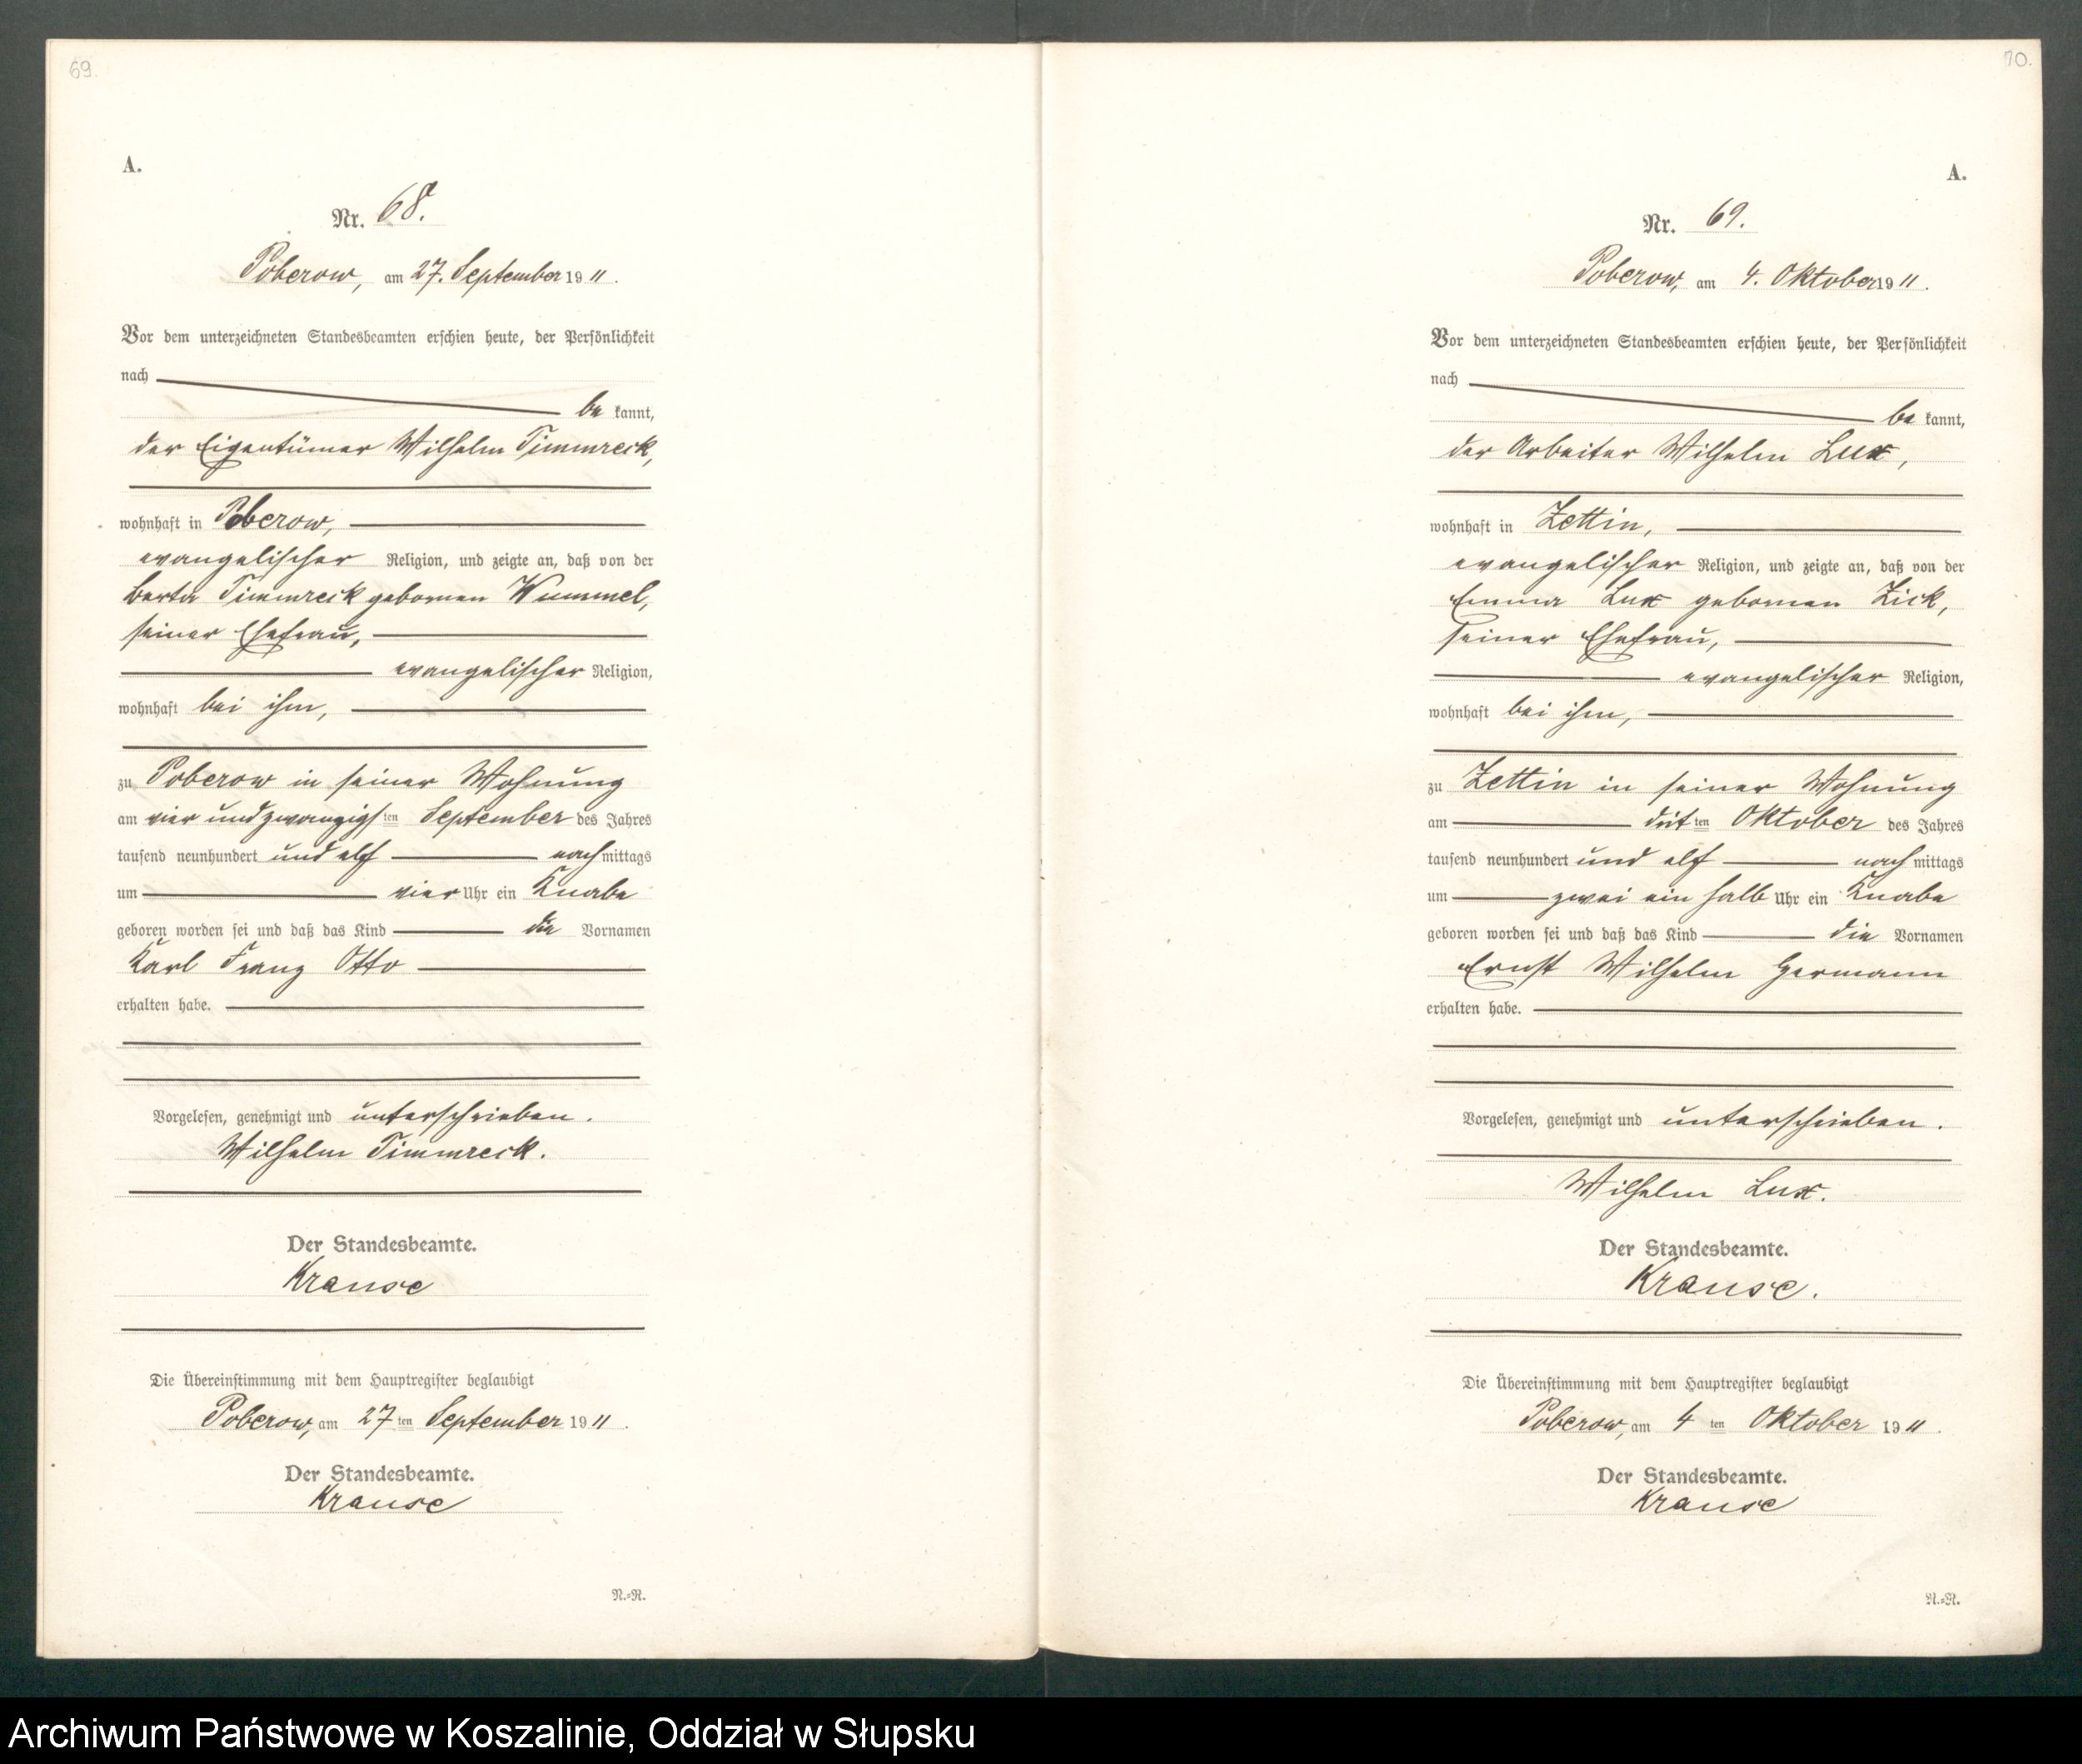 69.
A.
Nr. 68.
Poberow, am 27. September 1911.
Vor dem unterzeichneten Standesbeamten erschien heute, der Persönlichkeit
nach
be kannt,
der Eigentümer Wilhelm Timmreck,
wohnhaft in Poberow,
evangelischer Religion, und zeigte an, daß von der
Berta Timmreck gebornen Wummel,
seiner Ehefrau,
evangelischer Religion,
wohnhaft bei ihm,
zu Poberow in seiner Wohnung
am vier und zwanzigsten September des Jahres
tausend neunhundert und elf nachmittags
um vier Uhr ein Knabe
geboren worden sei und daß das Kind die Vornamen
Karl Franz Otto
erhalten habe.
Vorgelesen, genehmigt und unterschrieben.
Wilhelm Timmreck.
Der Standesbeamte.
Krause
Die Übereinstimmung mit dem Hauptregister beglaubigt
Poberow, am 27ten September 1911.
Der Standesbeamte.
Krause
N.=R.
70.
A.
Nr. 69.
Poberow, am 4. Oktober 1911.
Vor dem unterzeichneten Standesbeamten erschien heute, der Persönlichkeit
nach
be kannt,
der Arbeiter Wilhelm Lux,
wohnhaft in Zettin,
evangelischer Religion, und zeigte an, daß von der
Emma Lux gebornen Zick,
seiner Ehefrau,
evangelischer Religion,
wohnhaft bei ihm,
zu Zettin in seiner Wohnung
am dritten Oktober des Jahres
tausend neunhundert und elf nachmittags
um zwei ein halb Uhr ein Knabe
geboren worden sei und daß das Kind die Vornamen
Ernst Wilhelm Hermann
erhalten habe.
Vorgelesen, genehmigt und unterschrieben.
Wilhelm Lux.
Der Standesbeamte.
Krause.
Die Übereinstimmung mit dem Hauptregister beglaubigt
Poberow, am 4ten Oktober 1911.
Der Standesbeamte.
Krause
N.=R.
Archiwum Państwowe w Koszalinie, Oddział w Słupsku